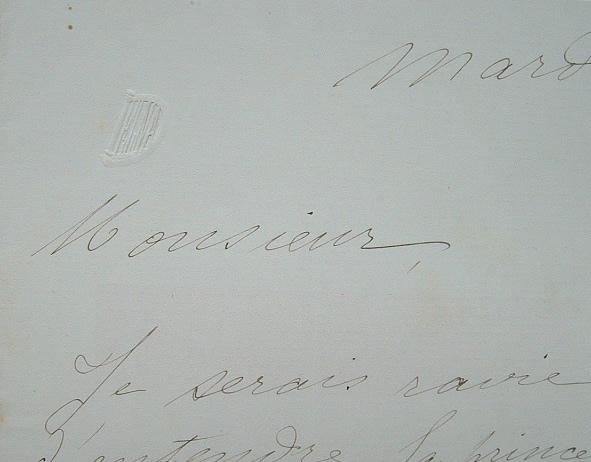 Mard
Monsieur,
Je serais ravie
d'entendre la prince